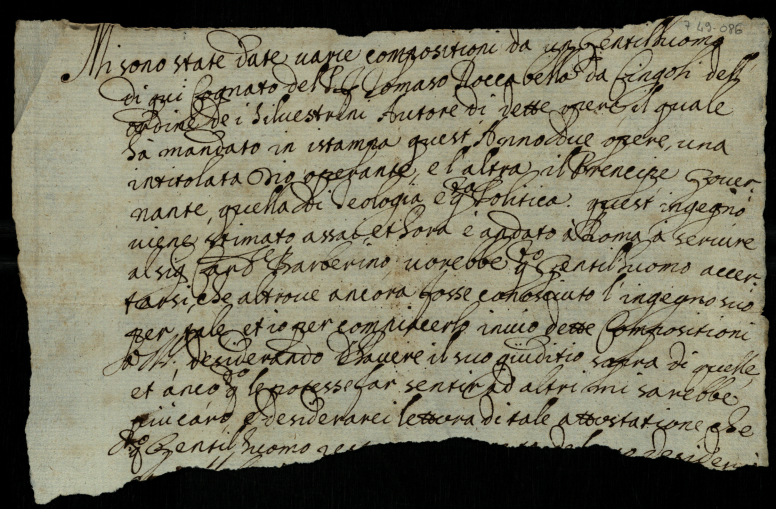 7 49-086
Mi sono state date varie compositioni da un Gentilhuomo
di qui Cognato del Tomaso Roccabella da Cingoli dell
ordine de i Silvestrini Autore di dette opere, il quale
hà mandato in istampa quest Anno due opere, una
intitolata Dio operante, e l'altra il Prencipe Gover-
nante, quella di Teologia e qta Politica. quest ingegno
viene stimato assai et hora è andato à Roma à servire
al sig Card.le Barberino vorebbe qto Gentilhuomo accer-
tarsi, che altrove ancora fosse conosciuto l'ingegno suo
per tale, et io per compiacerlo invio dette Compositioni
desiderando d'havere il suo giuditio sopra di quelle,
et anco qdo le potesse far sentir ad altri mi sarebbe
piu caro, e desiderarei lettera di tale attestatione che
qto Gentilhuomo desideri